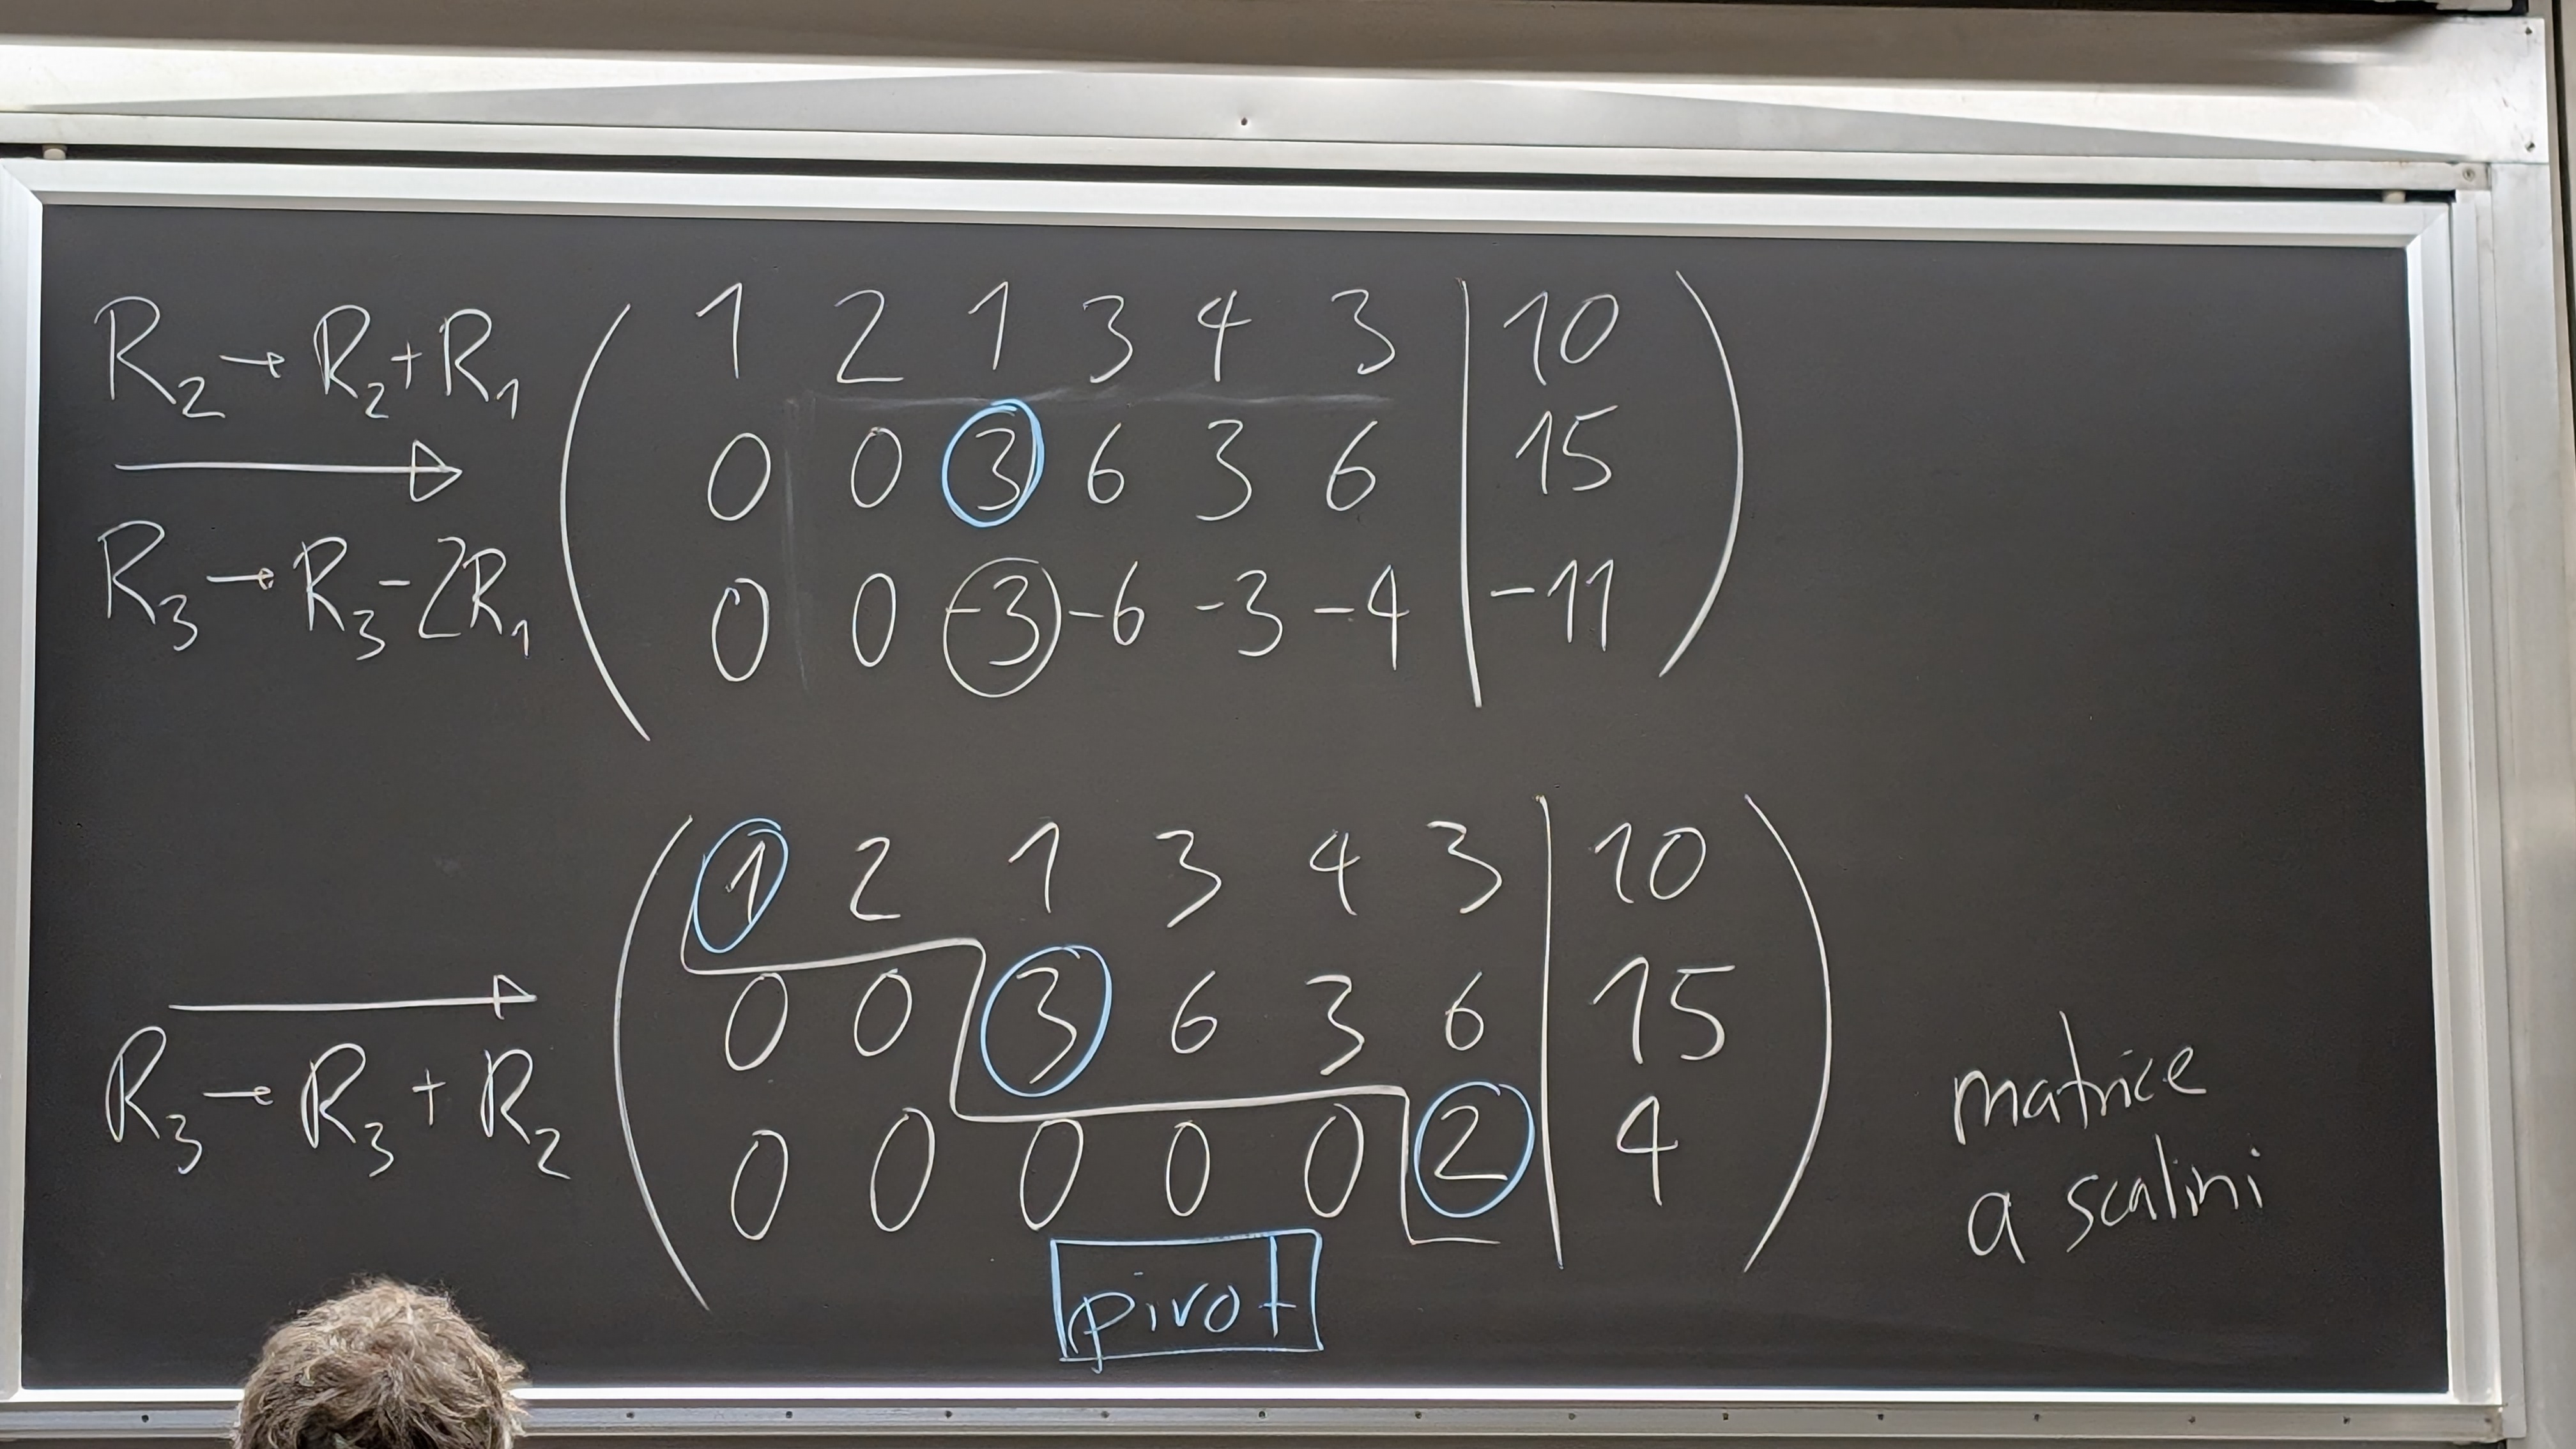 R₂ → R₂ + R₁
R₃ → R₃ - 2R₁
1 2 1 3 4 3 | 10
0 0 3 6 3 6 | 15
0 0 -3 -6 -3 -4 | -11
R₃ → R₃ + R₂
1 2 1 3 4 3 | 10
0 0 3 6 3 6 | 15
0 0 0 0 0 2 | 4
pivot
matrice
a scalini